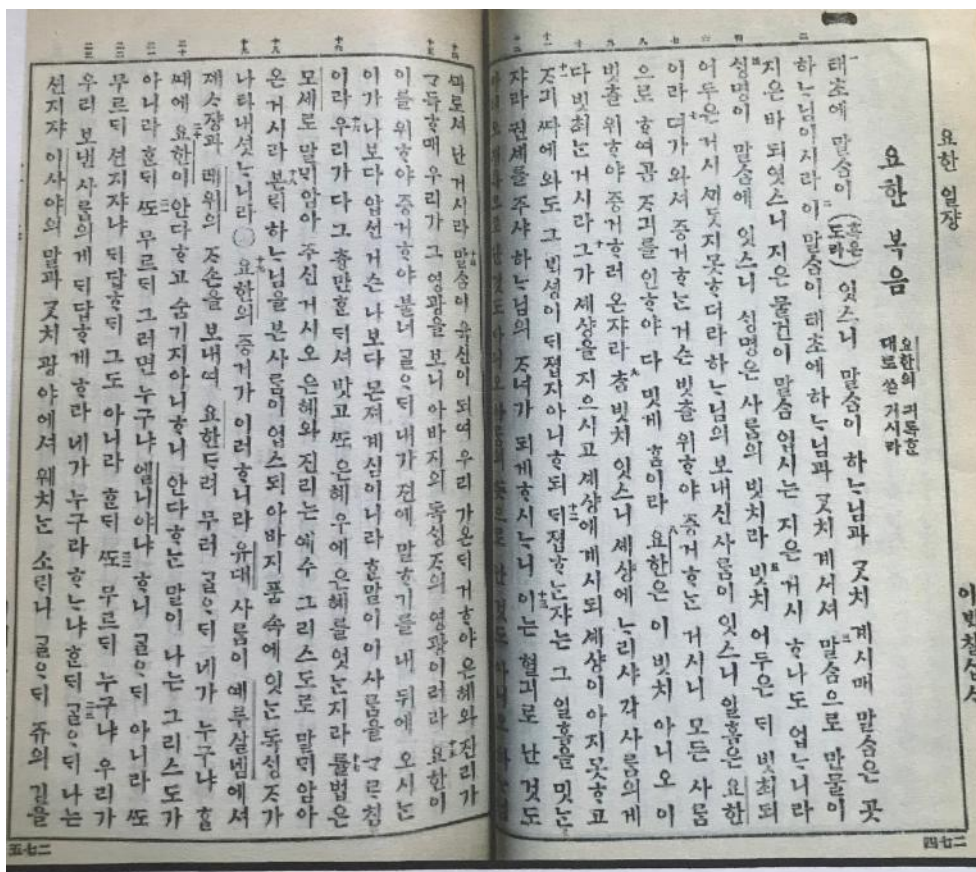 요한 일쟝
이ᄇᆡᆨ칠십ᄉ
요한 복음
요한의 긔록ᄒᆞᆫ
대로 쓴 거시라
一
태초에 말ᄉᆞᆷ이 (혹은 도라) 잇스니 말ᄉᆞᆷ이 하ᄂᆞ님과 ᄀᆞᆺ치 계시매 말ᄉᆞᆷ은 곳
하ᄂᆞ님이시라 이 말ᄉᆞᆷ이 태초에 하ᄂᆞ님과 ᄀᆞᆺ치 계셔셔 말ᄉᆞᆷ으로 만물이
지은바 되엿스니 지은 물건이 말ᄉᆞᆷ 업시는 지은 거시 ᄒᆞ나도 업ᄂᆞ니라
ᄉᆡᆼ명이 말ᄉᆞᆷ에 잇스니 ᄉᆡᆼ명은 사ᄅᆞᆷ의 빗치라 빗치 어두은 ᄃᆡ 빗최되
어두은 거시 ᄭᆡᄃᆞᆺ지 못ᄒᆞ더라 하ᄂᆞ님의 보내신 사ᄅᆞᆷ이 잇스니 일홈은 요한
이라 뎌가 와셔 증거ᄒᆞᄂᆞᆫ 거슨 빗츨 위ᄒᆞ야 증거ᄒᆞᄂᆞᆫ 거시니 모든 사ᄅᆞᆷ
으로 ᄒᆞ여곰 ᄌᆞ긔를 인ᄒᆞ야 다 밋게 홈이라 요한은 이 빗치 아니오 이
빗츨 위ᄒᆞ야 증거ᄒᆞ러 온쟈라 ᄎᆞᆷ 빗치 잇스니 셰샹에 ᄂᆞ리샤 각 사ᄅᆞᆷ의게
다 빗최ᄂᆞᆫ 거시라 그가 셰샹을 지으시고 셰샹에 계시되 셰샹이 아지 못ᄒᆞ고
ᄌᆞ긔 ᄯᅡ에 와도 그 ᄇᆡᆨ셩이 ᄃᆡ졉지 아니ᄒᆞ되 ᄃᆡ졉ᄒᆞᄂᆞᆫ쟈는 그 일홈을 밋ᄂᆞᆫ
쟈라 권셰를 주샤 하ᄂᆞ님의 ᄌᆞ녀가 되게 ᄒᆞ시ᄂᆞ니 이는 혈긔로 난 것도
四七二
ᄭᅴ로셔 난 거시라 말ᄉᆞᆷ이 육신이 되여 우리 가온ᄃᆡ 거ᄒᆞ야 은혜와 진리가
ᄀᆞ득ᄒᆞ매 우리가 그 영광을 보니 아바지의 독ᄉᆡᆼᄌᆞ의 영광이러라 요한이
이를 위ᄒᆞ야 증거ᄒᆞ야 불너 ᄀᆞᆯᄋᆞᄃᆡ 내가 젼에 말ᄒᆞ기를 내 뒤에 오시ᄂᆞᆫ
이가 나보다 압션 거슨 나보다 몬져 계심이니라 ᄒᆞᆫ말이 이 사ᄅᆞᆷ을 ᄀᆞᄅᆞ침
이라 우리가 다 그 츙만ᄒᆞᆫ ᄃᆡ셔 밧고 ᄯᅩ 은혜 우에 은혜를 엇ᄂᆞᆫ지라 률법은
모세로 말ᄆᆡ암아 주신 거시오 은혜와 진리는 예수 그리스도로 말ᄆᆡ암아
온 거시라 본ᄃᆡ 하ᄂᆞ님을 본 사ᄅᆞᆷ이 업스되 아바지 품 속에 잇ᄂᆞᆫ 독ᄉᆡᆼᄌᆞ가
나타내셧ᄂᆞ니라 ○ 요한의 증거가 이러ᄒᆞ니라 유대 사ᄅᆞᆷ이 예루살넴에셔
제ᄉᆞ쟝과 레위의 ᄌᆞ손을 보내여 요한ᄃᆞ려 무러 ᄀᆞᆯᄋᆞᄃᆡ 네가 누구냐 ᄒᆞᆯ
ᄯᅢ에 요한이 안다ᄒᆞ고 숨기지 아니ᄒᆞ니 안다ᄒᆞᄂᆞᆫ 말이 나는 그리스도가
아니라 ᄒᆞᆫᄃᆡ ᄯᅩ 무르ᄃᆡ 그러면 누구냐 엘니야냐 ᄒᆞ니 ᄀᆞᆯᄋᆞᄃᆡ 아니라 ᄯᅩ
무르ᄃᆡ 션지쟈냐 ᄃᆡ답ᄒᆞᄃᆡ 그도 아니라 ᄒᆞᆫᄃᆡ ᄯᅩ 무르ᄃᆡ 누구냐 우리가
우리 보낸 사ᄅᆞᆷ의게 ᄃᆡ답ᄒᆞ게 ᄒᆞ라 네가 누구라 ᄒᆞᄂᆞ냐 ᄒᆞᆫᄃᆡ ᄀᆞᆯᄋᆞᄃᆡ 나는
션지쟈 이사야의 말과 ᄀᆞᆺ치 광야에셔 웨치ᄂᆞᆫ 소ᄅᆡ니 ᄀᆞᆯᄋᆞᄃᆡ 쥬의 길을
五七二